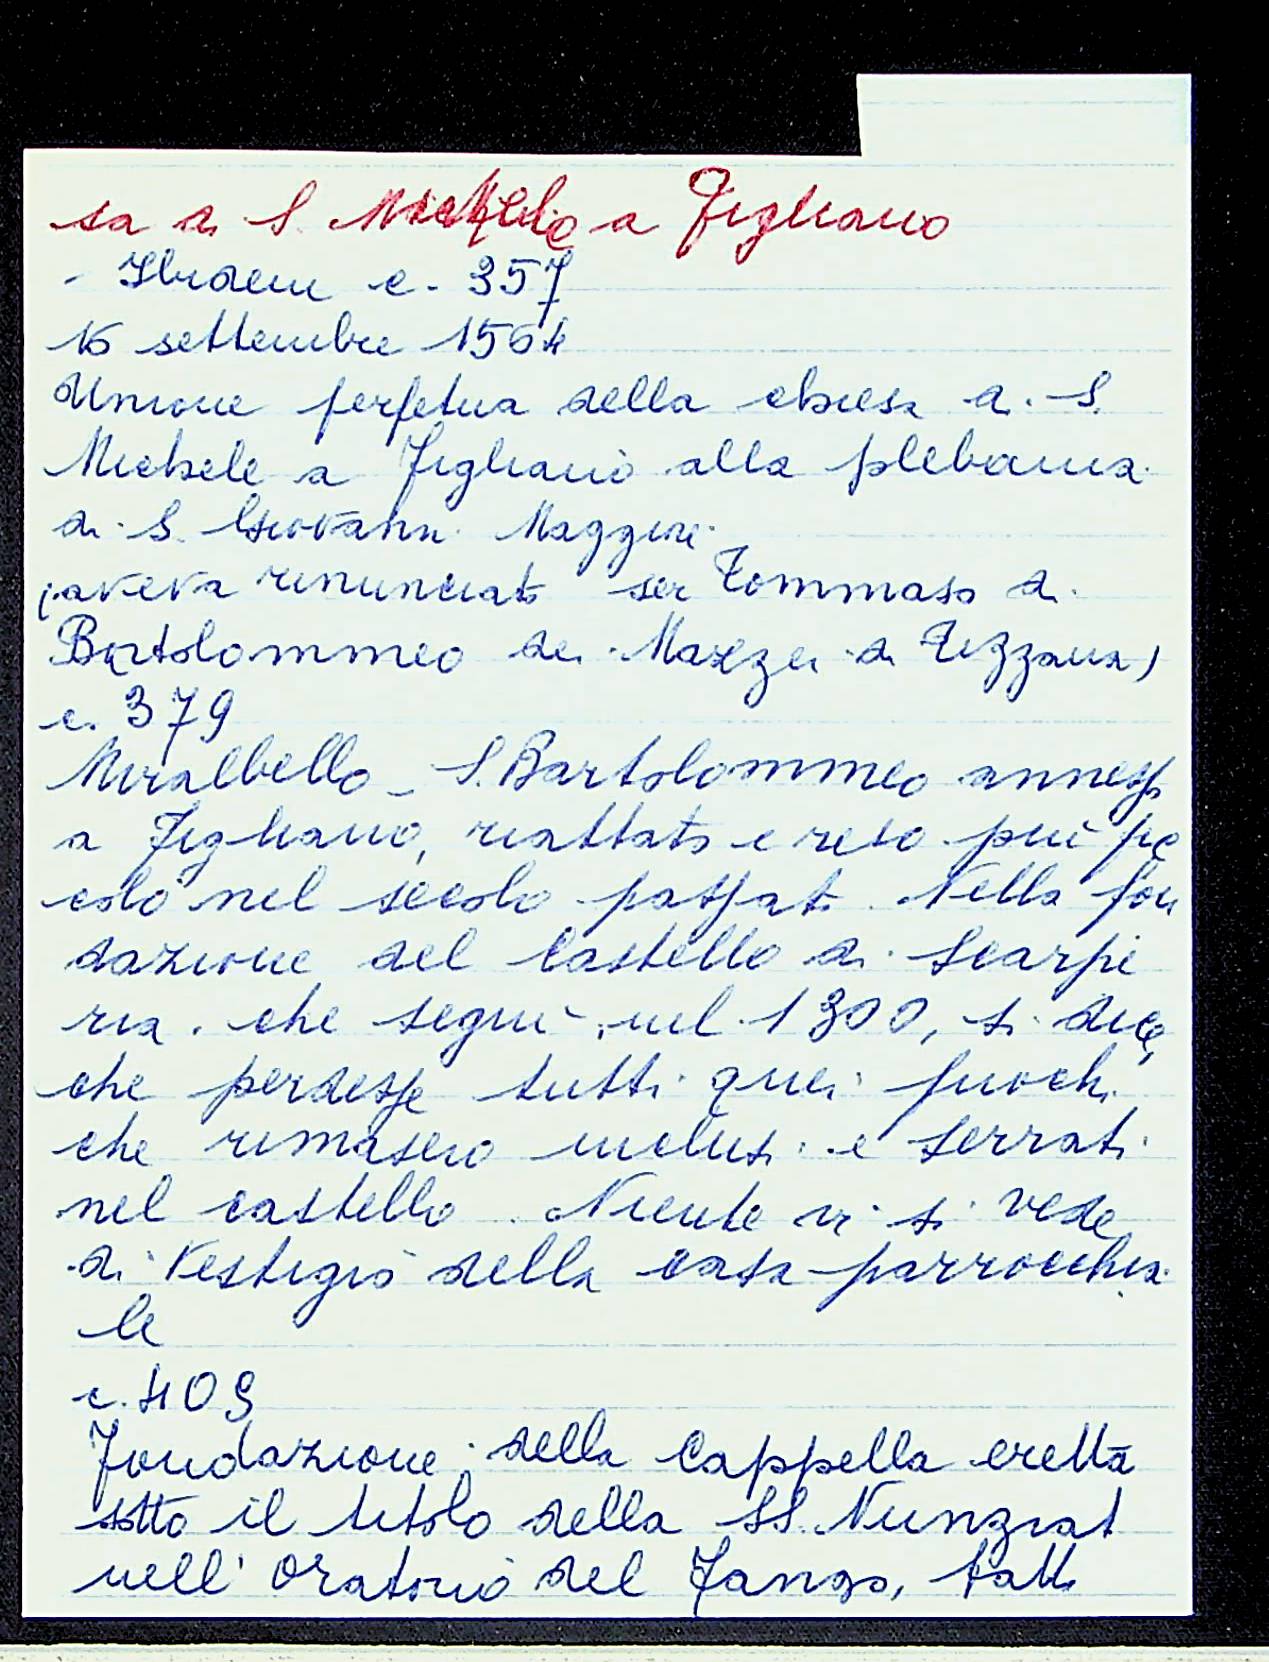 sa di S. Michele a Figliano
- Ibidem c. 357
16 settembre 1564
Unione perpetua della chiesa di S.
Michele a Figliano alla plebania
di S. Giovanni Maggiore
(aveva rinunciato ser Tommaso di
Bartolommeo dei Mazzei di Tizzana)
c. 379
Miralbello - S. Bartolommeo annesso
a Figliano, riattato e reso più pic
colo nel secolo passato. Nella fon
dazione del Castello di Scarpe
ria. che seguì nel 1300, si dice,
che perdesse tutti quei fuochi
che rimasero inclusi e serrati
nel castello. Niente vi si vede
di vestigio della casa parrocchia
le
c. 409
Fondazione della Cappella eretta
sotto il titolo della SS. Nunziat
nell' Oratorio del Tango, fatt